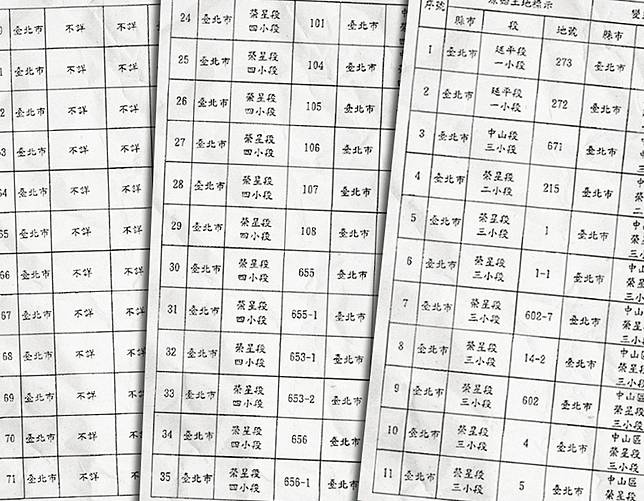 臺北市 不詳 不詳
臺北市 不詳 不詳
臺北市 不詳 不詳
臺北市 不詳 不詳
64 臺北市 不詳 不詳
65 臺北市 不詳 不詳
66 臺北市 不詳 不詳
67 臺北市 不詳 不詳
68 臺北市 不詳 不詳
69 臺北市 不詳 不詳
70 臺北市 不詳 不詳
71 臺北市 不詳 不詳
24 臺北市 榮星段 101 臺北市
四小段
25 臺北市 榮星段 104 臺北市
四小段
26 臺北市 榮星段 105 臺北市
四小段
27 臺北市 榮星段 106 臺北市
四小段
28 臺北市 榮星段 107 臺北市
四小段
29 臺北市 榮星段 108 臺北市
四小段
30 臺北市 榮星段 655 臺北市
四小段
31 臺北市 榮星段 655-1 臺北市
四小段
32 臺北市 榮星段 653-1 臺北市
四小段
33 臺北市 榮星段 653-2 臺北市
四小段
34 臺北市 榮星段 656 臺北市
四小段
35 臺北市 榮星段 656-1 臺北市
四小段
序號 土地標示
縣市 段 地號 縣市
1 臺北市 延平段 273 臺北市
一小段
2 臺北市 延平段 272 臺北市
一小段
3 臺北市 中山段 671 臺北市
三小段
4 臺北市 榮星段 215 臺北市
二小段
5 臺北市 榮星段 1 臺北市
三小段
6 臺北市 榮星段 1-1 臺北市
三小段
7 臺北市 榮星段 602-7 臺北市
三小段
8 臺北市 榮星段 14-2 臺北市
三小段
9 臺北市 榮星段 602 臺北市 中山區
三小段 榮星
三小
10 臺北市 榮星段 4 臺北市 中山區
三小段 榮星
三小
11 臺北市 榮星段 5 臺北市 中山區
三小段 榮星